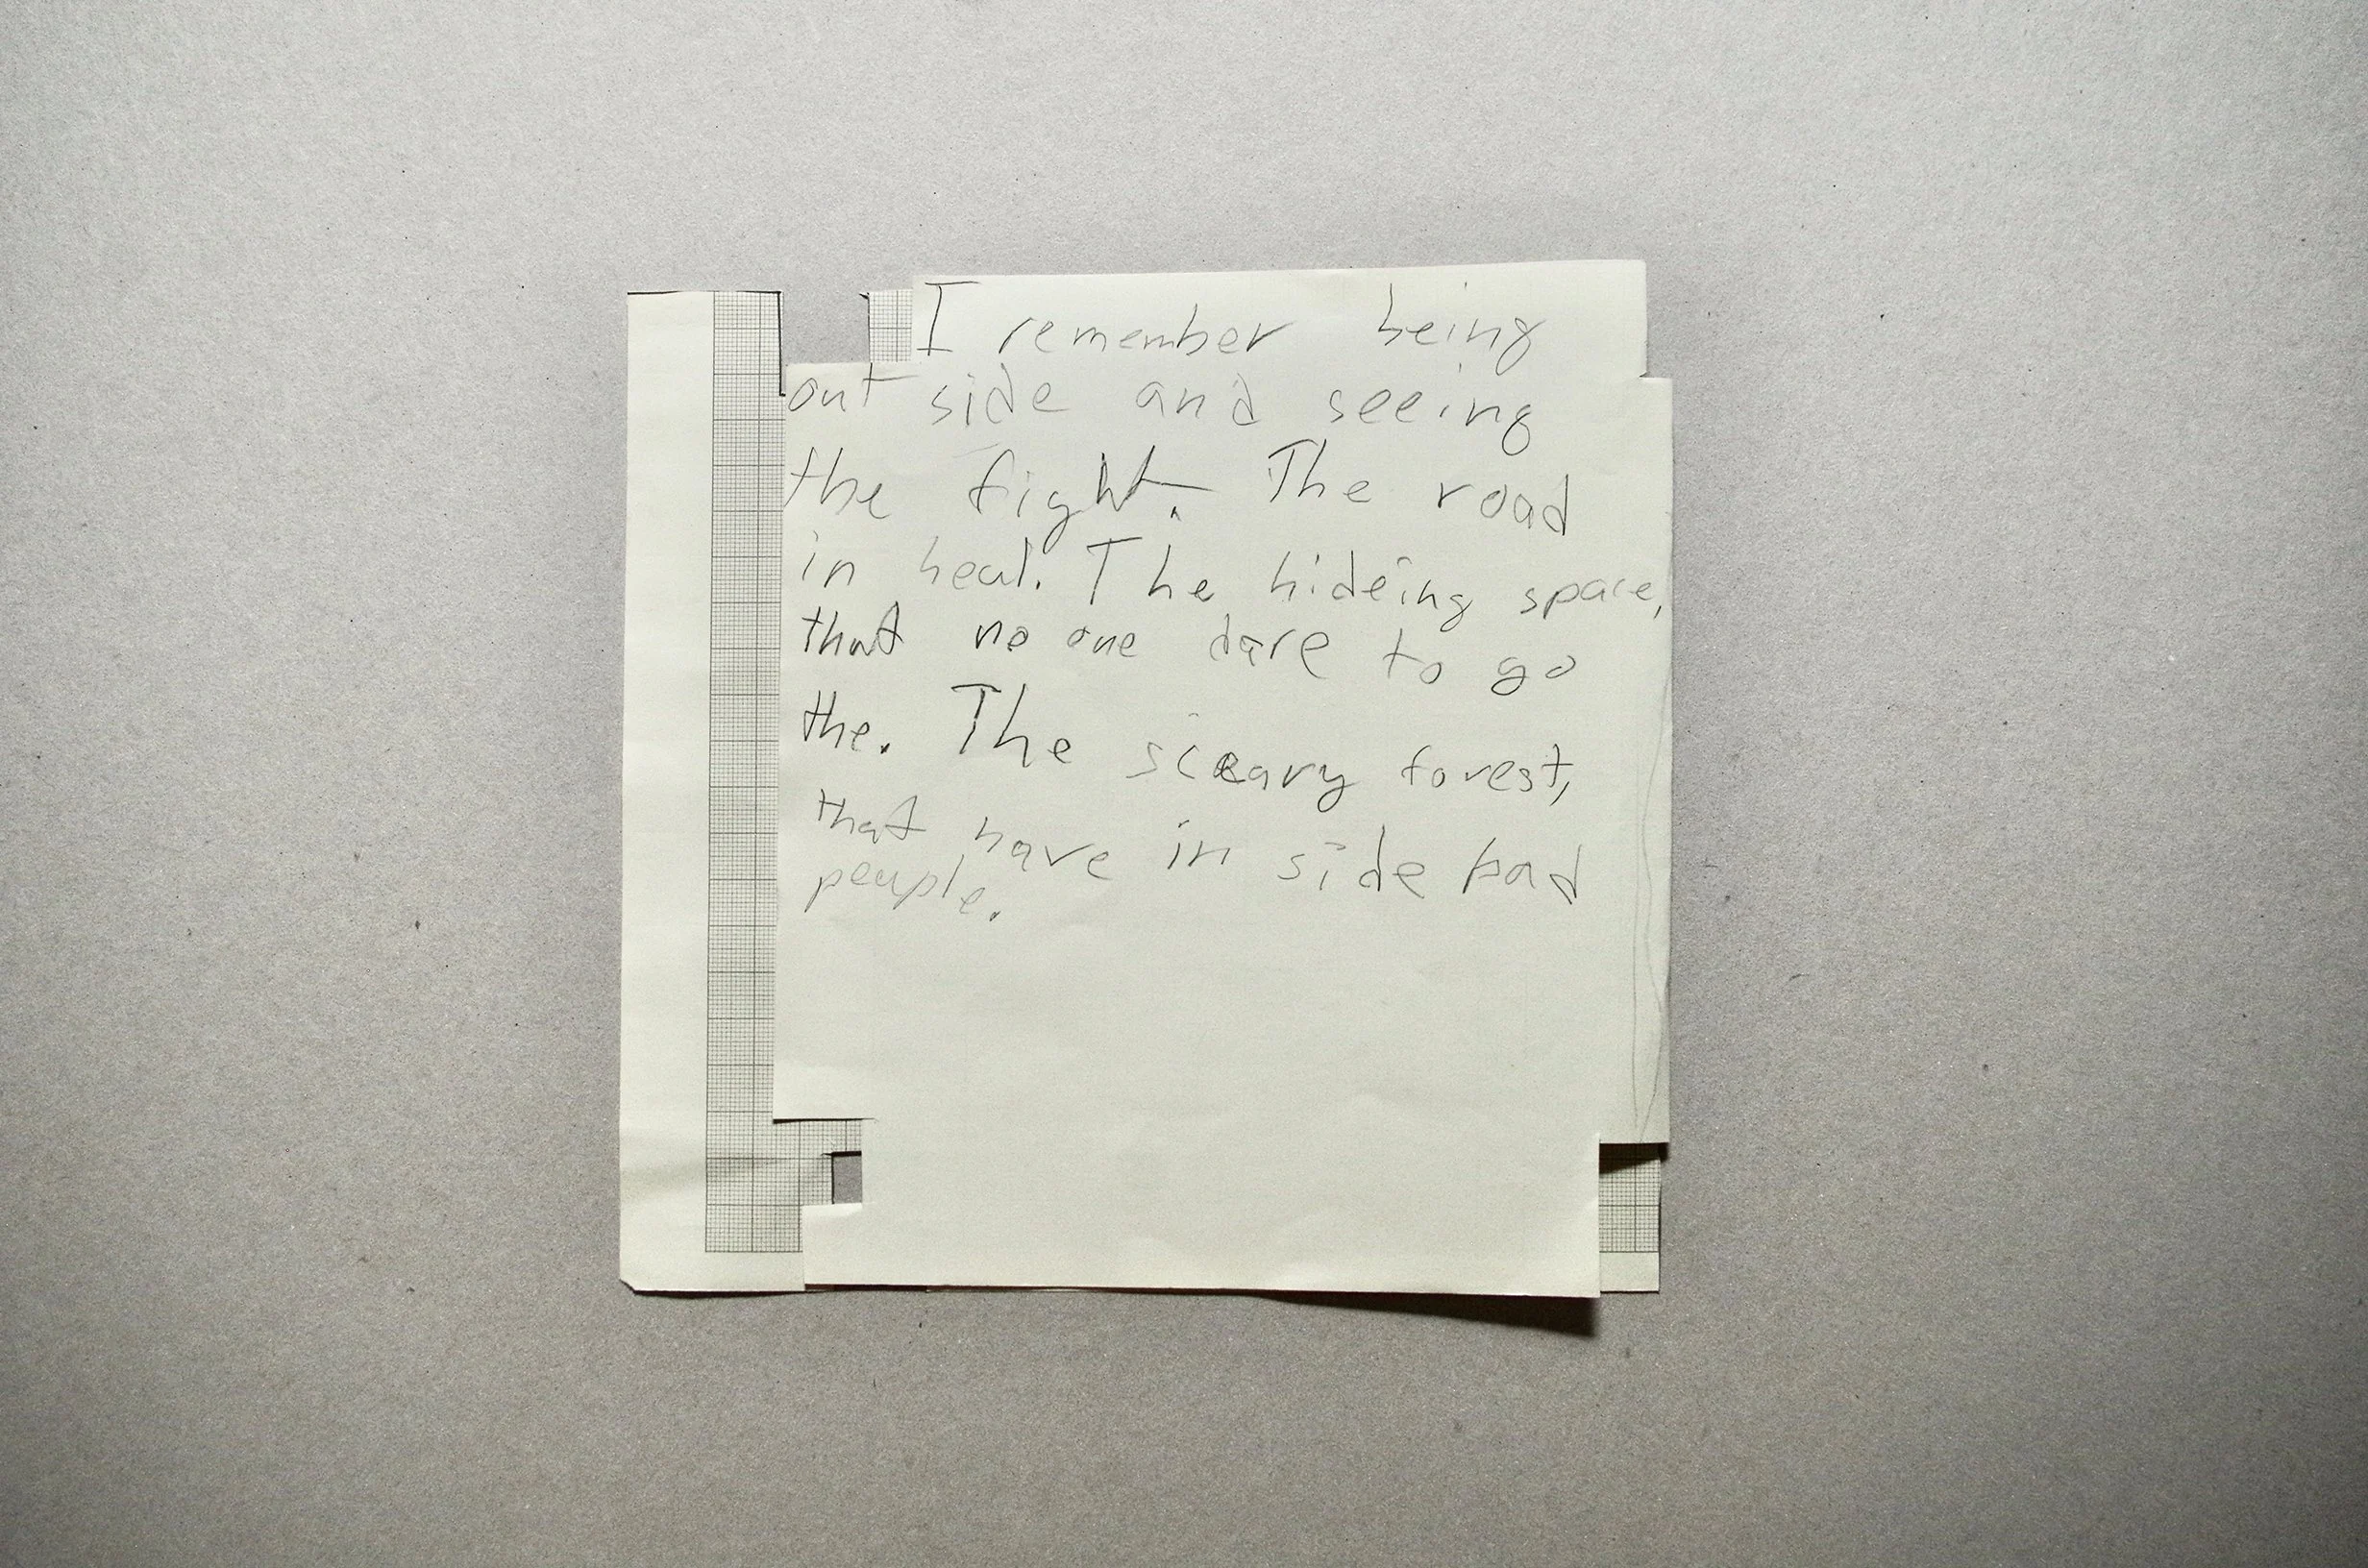 I remember being
out side and seeing
the fight. The road
in heal. The hideing space,
that no one dare to go
the. The sceary forest,
that have in side bad
people.